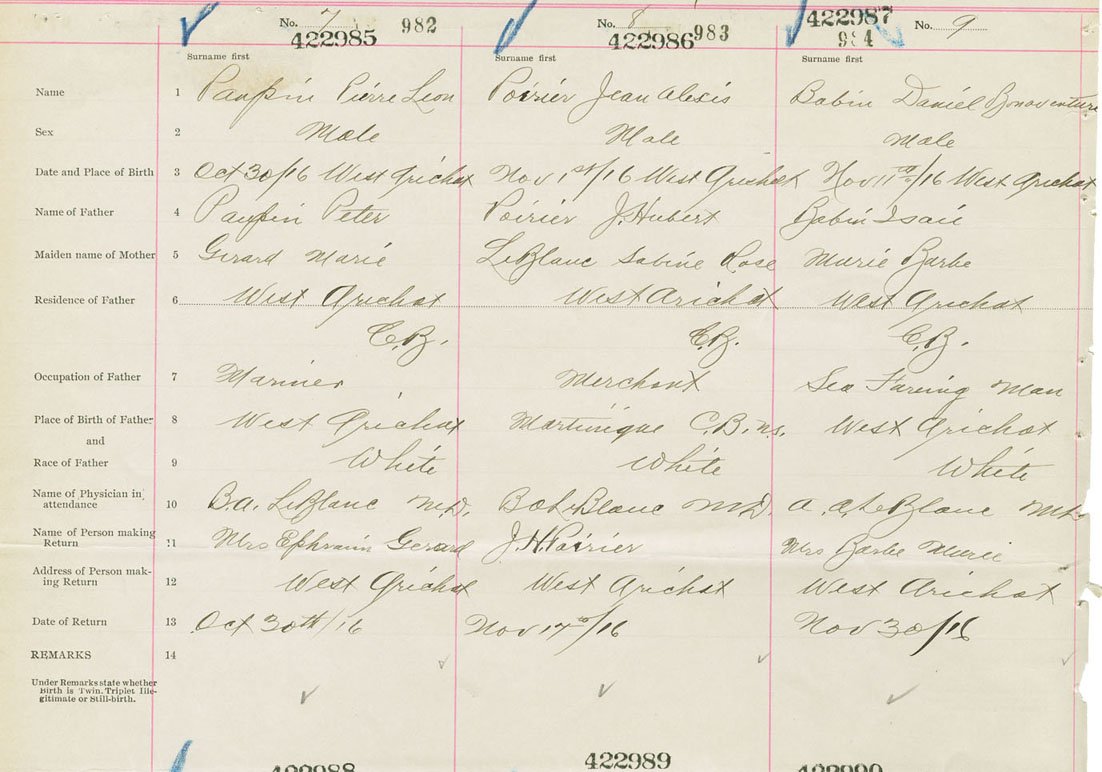 No. 7 982 No. 8 983 422987 No. 9
422985 422986 984
Surname first Surname first Surname first
Name 1 Paupin Pierre Leon Poirier Jean Alexis Babin Daniel Bonaventure
Sex 2 Male Male Male
Date and Place of Birth 3 Oct 30/16 West Arichat Nov 1st/16 West Arichat Nov 11th/16 West Arichat
Name of Father 4 Paupin Peter Poirier J. Hubert Babin Isaie
Maiden name of Mother 5 Girard Marie LeBlanc Sabine Rose Marie Barbe
Residence of Father 6 West Arichat West Arichat West Arichat
C.B. C.B. C.B.
Occupation of Father 7 Marinier Merchant Sea Faring Man
Place of Birth of Father 8 West Arichat Martinique C.B. N.S. West Arichat
and
Race of Father 9 White White White
Name of Physician in attendance 10 B.A. LeBlanc M.D. LeBlanc M.D. A. LeBlanc
Name of Person making Return 11 Mrs Ephraim Gerard J.H. Poirier Mrs Barbe Marie
Address of Person making Return 12 West Arichat West Arichat West Arichat
Date of Return 13 Oct 30th/16 Nov 17th/16 Nov 30/16
REMARKS 14
Under Remarks state whether
Birth is Twin. Triplet Ille-
gitimate or Still-birth.
422988 422989 422990